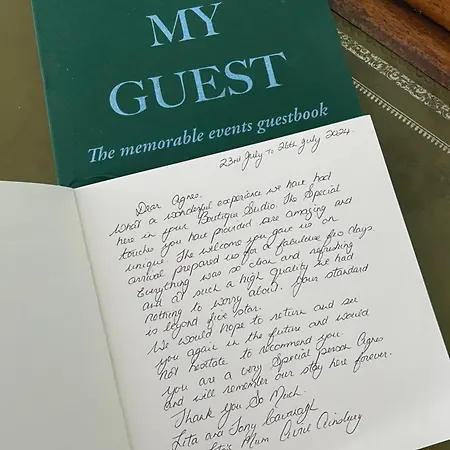 MY
GUEST
The memorable events guestbook
23rd July to 26th July 2024.
Dear Agnes.
What a wonderful experience we have had
here in your Boutique Studio. The Special
touches you have provided are amazing and
unique. The welcome you gave us on
arrival prepared us for a fabulous few days.
Everything was so clean and refreshing
and at such a high quality we had
nothing to worry about. Your standard
is beyond five star.
We would hope to return and see
you again in the future and would
not hesitate to recommend you.
You are a very Special person Agnes
and will remember our stay here forever.
Thank You So Much.
Lita and Tony Cavanagh
Mum